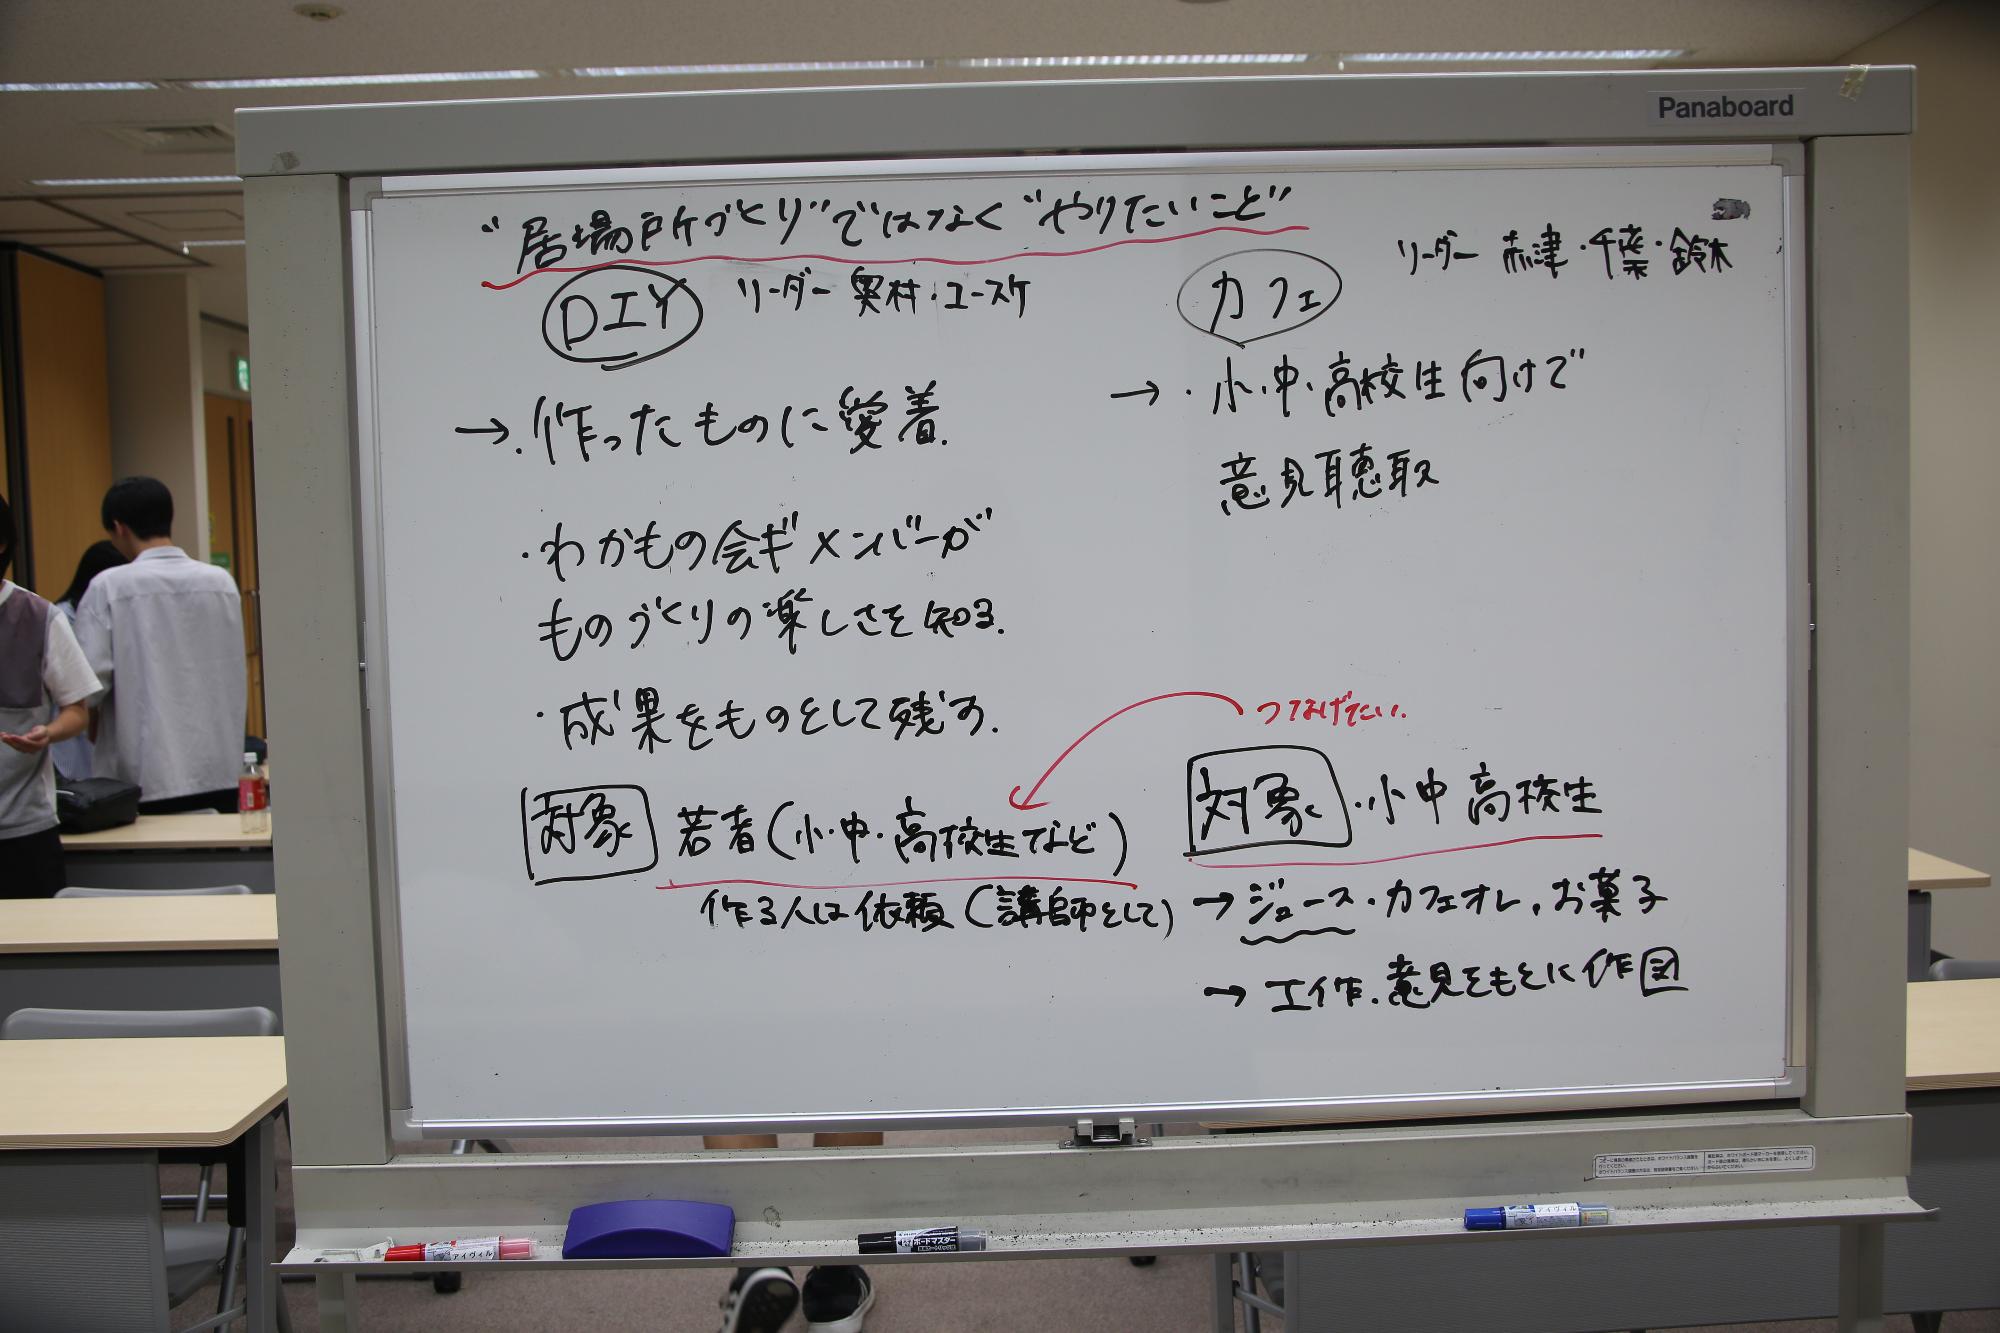 Panaboard
"居場所づくり"ではなく"やりたいこと"
DIY リーダー 奥村・ユースケ
→・作ったものに愛着.
・わかもの会ギメンバーが
ものづくりの楽しさを知る.
・成果をものとして残す.
対象 若者(小・中・高校生など)
作る人は依頼(講師として)
カフェ リーダー 赤津・千葉・鈴木
→・小・中・高校生向けで
意見聴取
つなげたい.
対象・小中高校生
→ジュース・カフェオレ,お菓子
→工作.意見をもとに作図
アイヴィル
ボードマスター
アイヴィル